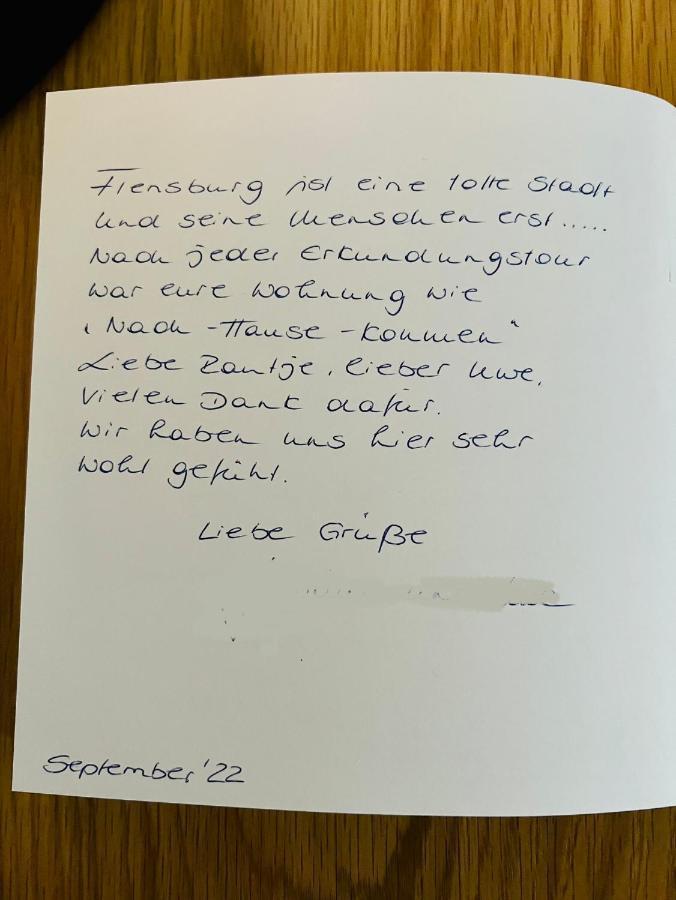 Flensburg ist eine tolle Stadt
und seine Menschen erst.....
Nach jeder Erkundungstour
war eure Wohnung wie
„Nach-Hause-Kommen“
Liebe Zantje, lieber Uwe,
Vielen Dank dafür.
Wir haben uns hier sehr
wohl gefühlt.
Liebe Grüße
September '22